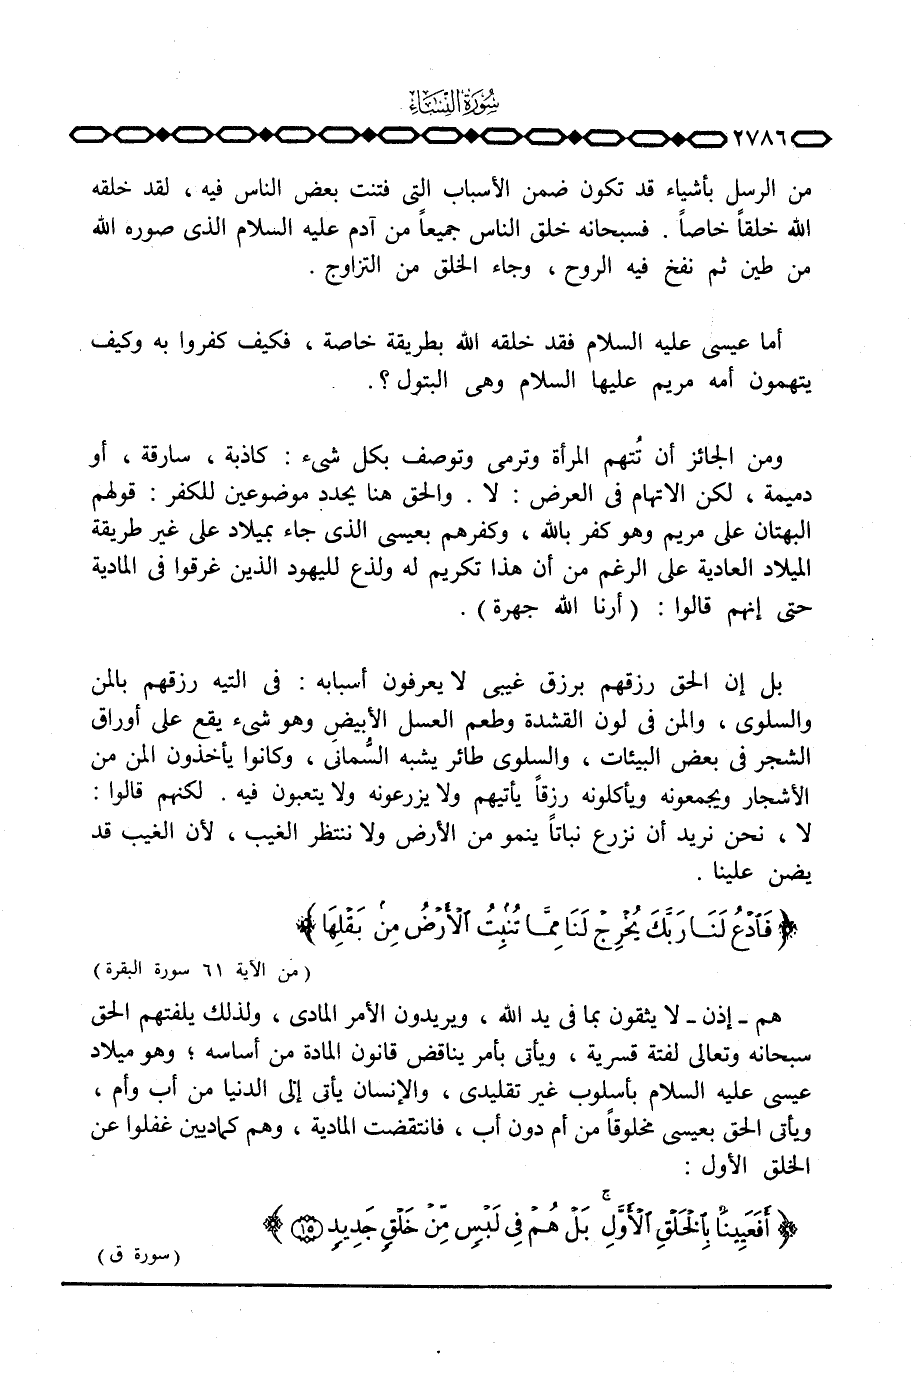 سُورَةُ النِّسَاءِ
٢٧٨٦
من الرسل بأشياء قد تكون ضمن الأسباب التى فتنت بعض الناس فيه ، لقد خلقه
الله خلقاً خاصاً . فسبحانه خلق الناس جميعاً من آدم عليه السلام الذى صوره الله
من طين ثم نفخ فيه الروح ، وجاء الخلق من التزاوج .
أما عيسى عليه السلام فقد خلقه الله بطريقة خاصة ، فكيف كفروا به وكيف
يتهمون أمه مريم عليها السلام وهى البتول ؟.
ومن الجائز أن تُتهم المرأة وترمى وتوصف بكل شىء : كاذبة ، سارقة ، أو
دميمة ، لكن الاتهام فى العرض : لا . والحق هنا يحدد موضوعين للكفر : قولهم
البهتان على مريم وهو كفر بالله ، وكفرهم بعيسى الذى جاء بميلاد على غير طريقة
الميلاد العادية على الرغم من أن هذا تكريم له ولذع لليهود الذين غرقوا فى المادية
حتى إنهم قالوا : ( أرنا الله جهرة ) .
بل إن الحق رزقهم برزق غيبى لا يعرفون أسبابه : فى التيه رزقهم بالمن
والسلوى ، والمن فى لون القشدة وطعم العسل الأبيض وهو شىء يقع على أوراق
الشجر فى بعض البيئات ، والسلوى طائر يشبه السُّمانَى ، وكانوا يأخذون المن من
الأشجار ويجمعونه ويأكلونه رزقاً يأتيهم ولا يزرعونه ولا يتعبون فيه . لكنهم قالوا :
لا ، نحن نريد أن نزرع نباتاً ينمو من الأرض ولا ننتظر الغيب ، لأن الغيب قد
يضن علينا .
﴿ فَٱدْعُ لَنَا رَبَّكَ يُخْرِجْ لَنَا مِمَّا تُنۢبِتُ ٱلْأَرْضُ مِنۢ بَقْلِهَا ﴾
( من الآية ٦١ سورة البقرة )
هم ـ إذن ـ لا يثقون بما فى يد الله ، ويريدون الأمر المادى ، ولذلك يلفتهم الحق
سبحانه وتعالى لفتة قسرية ، ويأتى بأمر يناقض قانون المادة من أساسه ؛ وهو ميلاد
عيسى عليه السلام بأسلوب غير تقليدى ، والإنسان يأتى إلى الدنيا من أب وأم ،
ويأتى الحق بعيسى مخلوقاً من أم دون أب ، فانتقضت المادية ، وهم كماديين غفلوا عن
الخلق الأول :
﴿ أَفَعَيِينَا بِٱلْخَلْقِ ٱلْأَوَّلِ ۚ بَلْ هُمْ فِى لَبْسٍ مِّنْ خَلْقٍ جَدِيدٍ ﴿١٥﴾ ﴾
( سورة ق )